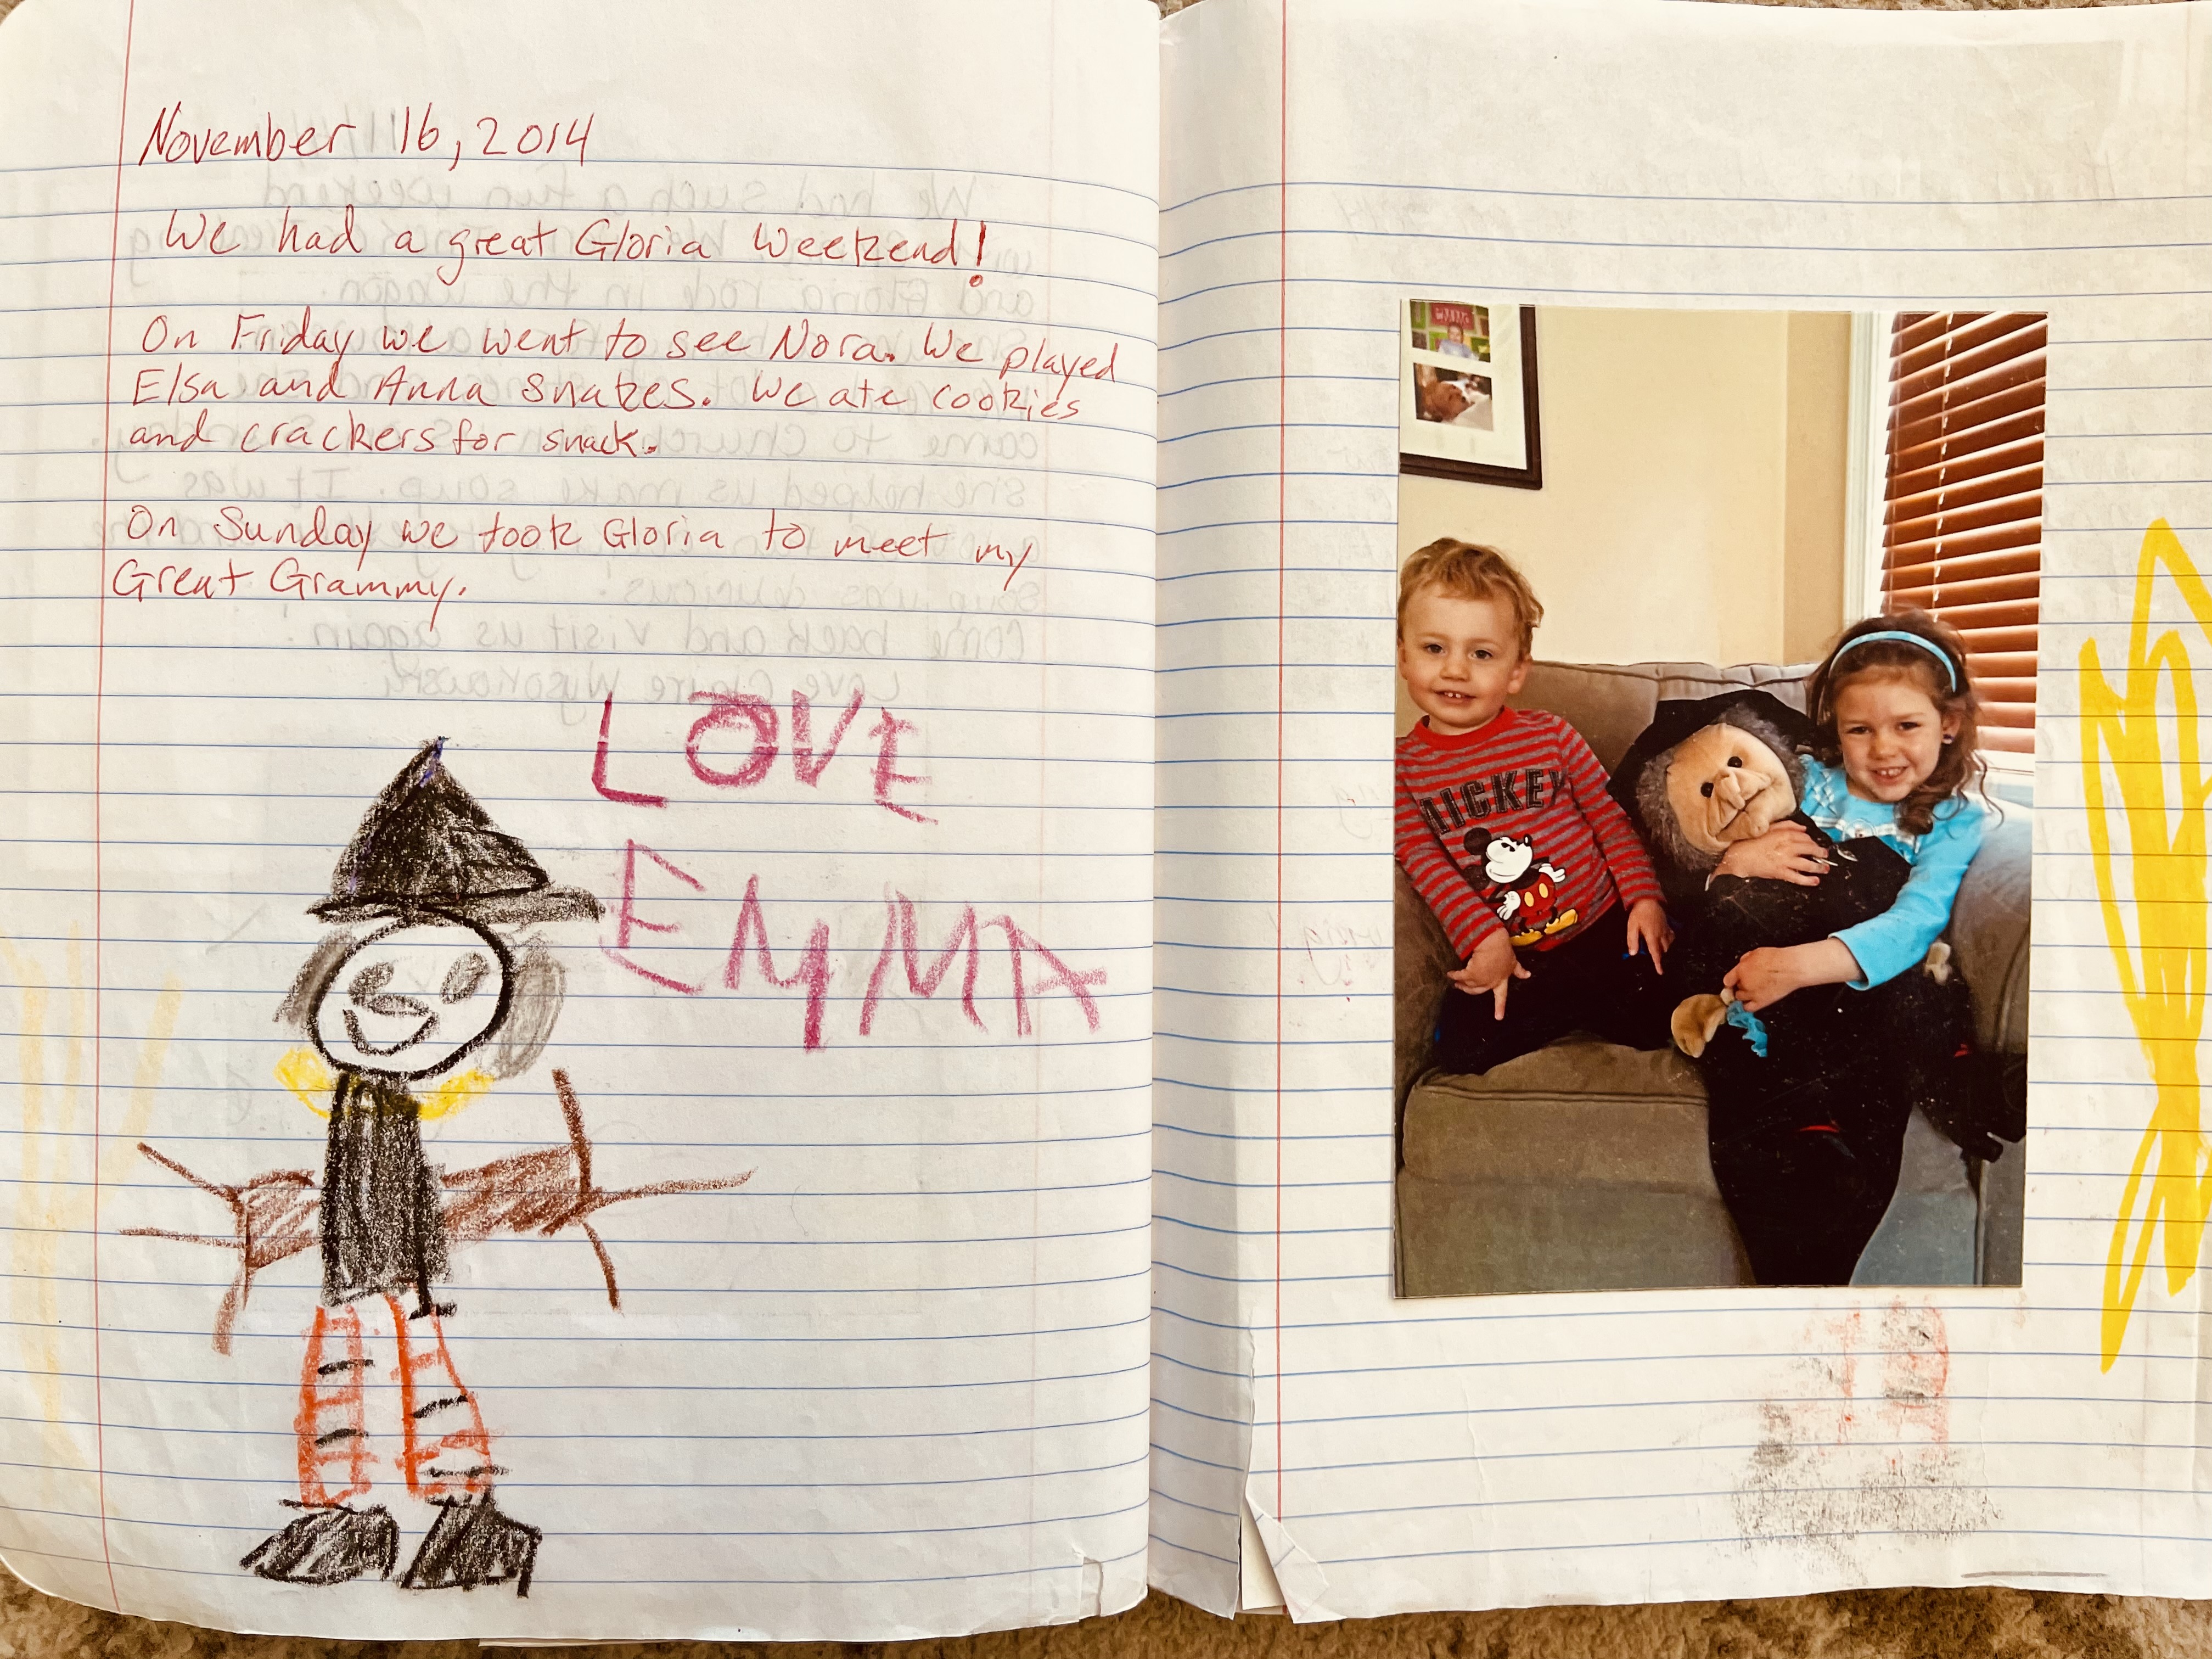 November 16, 2014
We had a great Gloria Weekend!
On Friday we went to see Nora. We played
Elsa and Anna Snakes. We ate cookies
and crackers for snack.
On Sunday we took Gloria to meet my
Great Grammy.
LOVE
EMMA
MICKEY